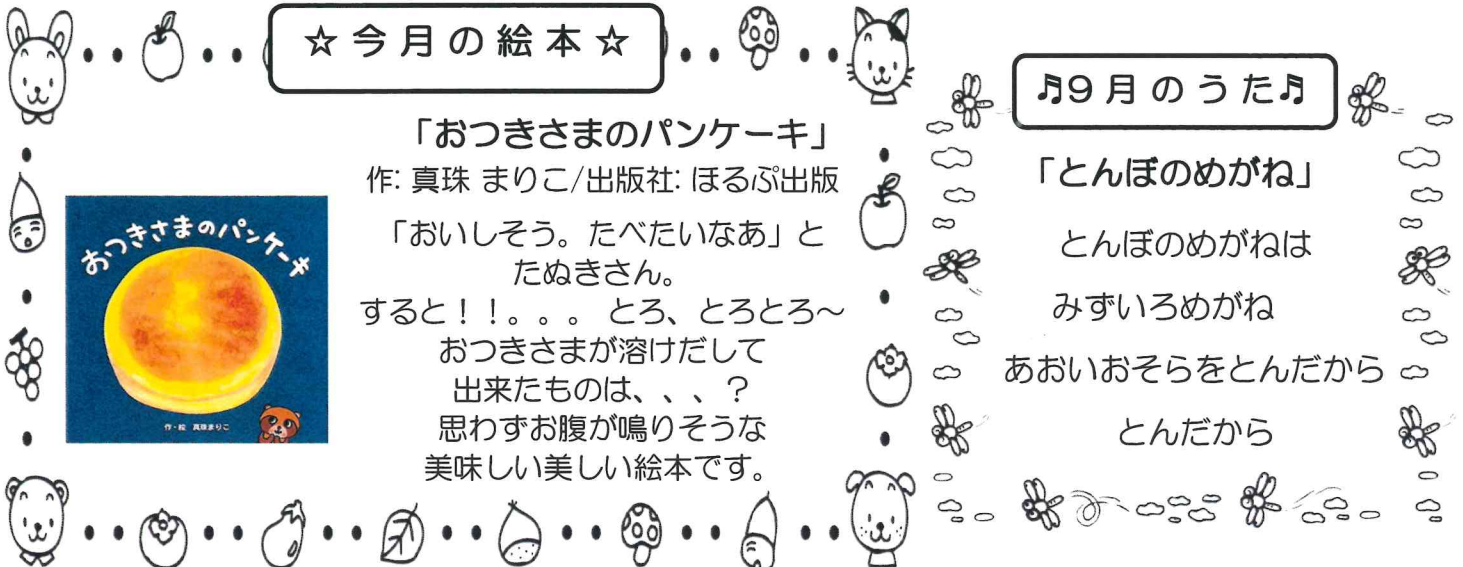 ☆今月の絵本☆
「おつきさまのパンケーキ」
作: 真珠 まりこ/出版社: ほるぷ出版
おつきさまのパンケーキ
作・絵 真珠まりこ
「おいしそう。たべたいなあ」と
たぬきさん。
すると!!。。。 とろ、とろとろ～
おつきさまが溶けだして
出来たものは、、、?
思わずお腹が鳴りそうな
美味しい美しい絵本です。
♬9月のうた♬
「とんぼのめがね」
とんぼのめがねは
みずいろめがね
あおいおそらをとんだから
とんだから